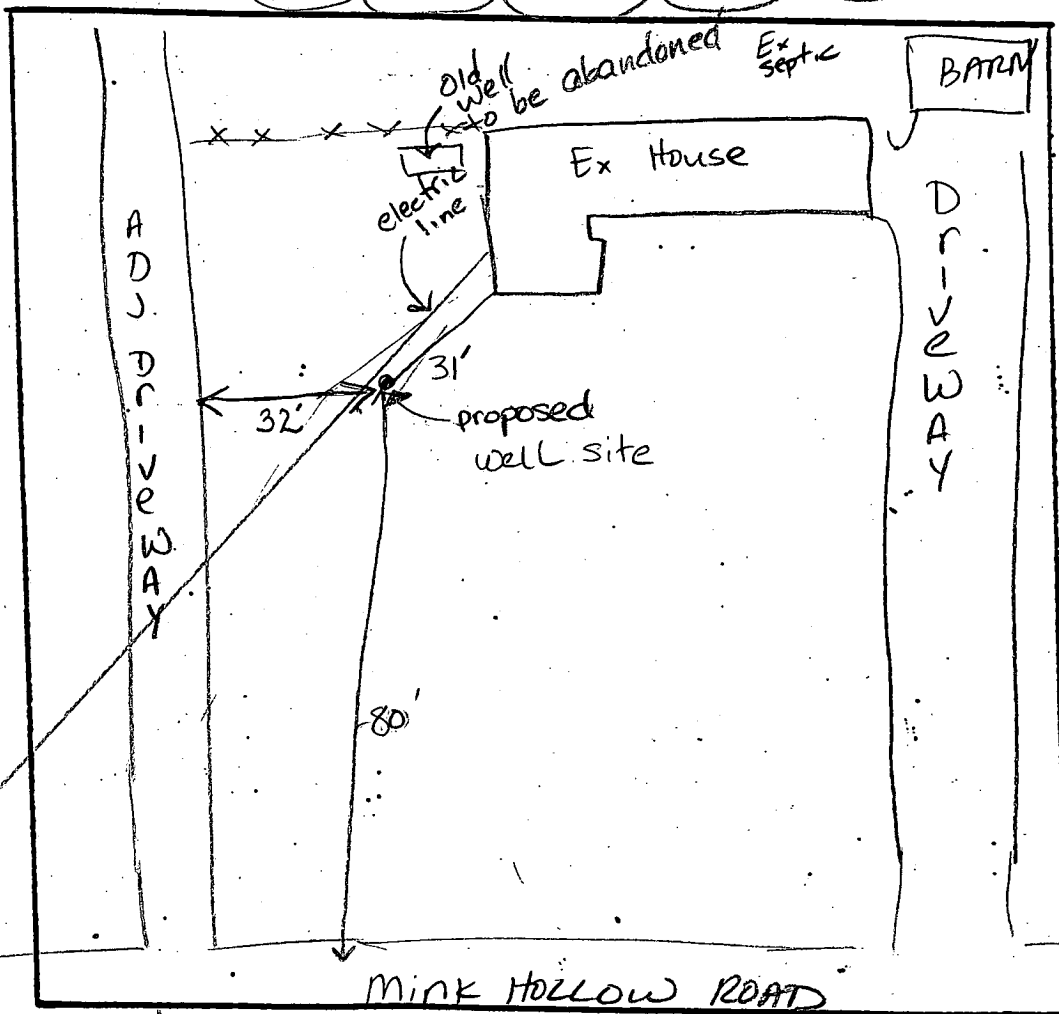 Old
Well
to be abandoned
Ex
septic
BARN
Ex House
electric
line
ADJ. DriveWAY
DriveWAY
31'
32'
proposed
well site
80'
Mink Hollow ROAD